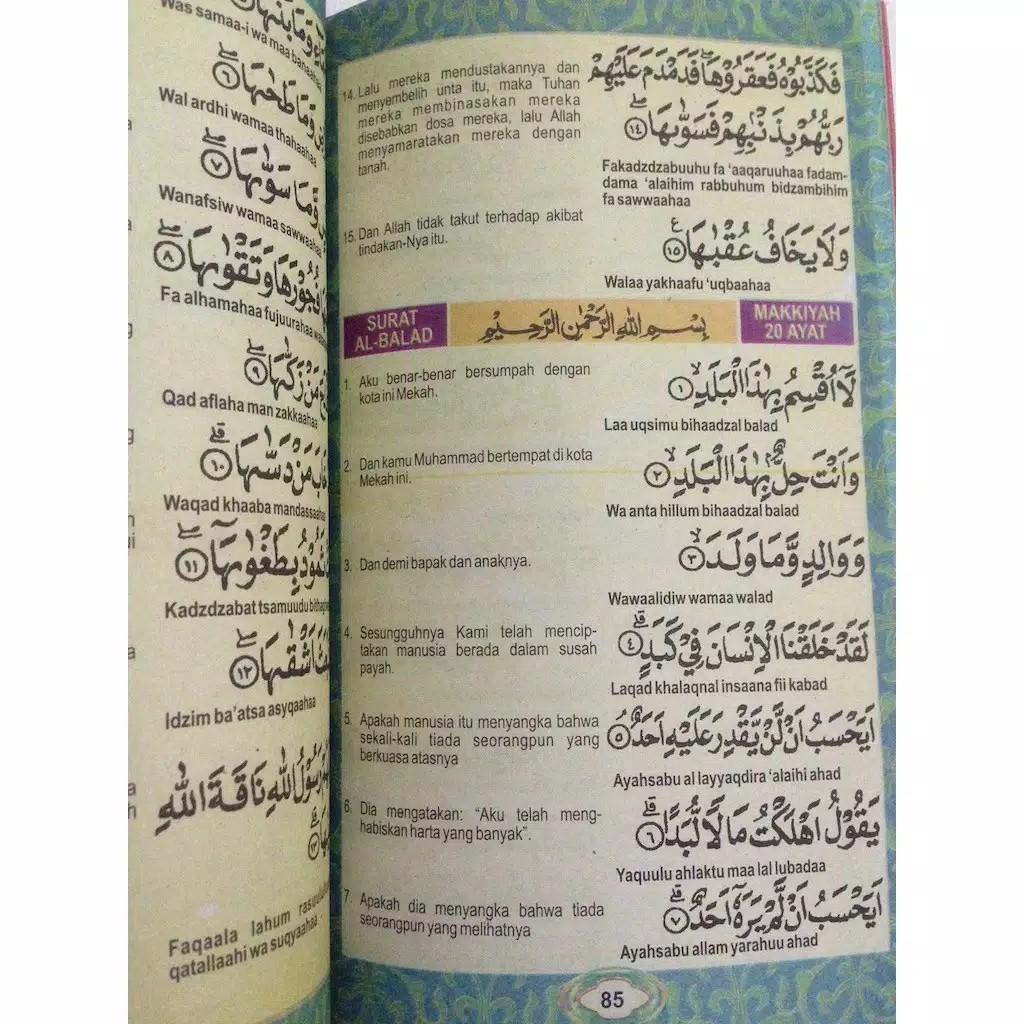 Was samaa-i wa maa banaahaa
Wal ardhi wamaa thahaahaa
وَّمَا سَوّٰىهَا ۝٧
Wanafsiw wamaa sawwaahaa
فُجُوْرَهَا وَتَقْوٰىهَا ۝٨
Fa alhamahaa fujuurahaa
مَنْ زَكّٰىهَا ۝٩
Qad aflaha man zakkaahaa
مَنْ دَسّٰىهَا ۝١٠
Waqad khaaba mandassaahaa
بِطَغْوٰىهَا ۝١١
Kadzdzabat tsamuudu
اَشْقٰىهَا ۝١٢
Idzim ba’atsa asyqaahaa
رَسُوْلُ اللّٰهِ نَاقَةَ اللّٰهِ
Faqaala lahum
qatallaahi wa suqyaahaa
14. Lalu mereka mendustakannya dan
menyembelih unta itu, maka Tuhan
mereka membinasakan mereka
disebabkan dosa mereka, lalu Allah
menyamaratakan mereka dengan
tanah.
فَكَذَّبُوْهُ فَعَقَرُوْهَاۖ فَدَمْدَمَ عَلَيْهِمْ
رَبُّهُمْ بِذَنْۢبِهِمْ فَسَوّٰىهَا ۝١٤
Fakadzdzabuuhu fa ‘aaqaruuhaa fadam-
dama ‘alaihim rabbuhum bidzambihim
fa sawwaahaa
15. Dan Allah tidak takut terhadap akibat
tindakan-Nya itu.
وَلَا يَخَافُ عُقْبٰهَا ۝١٥
Walaa yakhaafu ‘uqbaahaa
SURAT
AL-BALAD
بِسْمِ اللّٰهِ الرَّحْمٰنِ الرَّحِيْمِ
MAKKIYAH
20 AYAT
1. Aku benar-benar bersumpah dengan
kota ini Mekah.
لَآ اُقْسِمُ بِهٰذَا الْبَلَدِۙ ۝١
Laa uqsimu bihaadzal balad
2. Dan kamu Muhammad bertempat di kota
Mekah ini.
وَاَنْتَ حِلٌّۢ بِهٰذَا الْبَلَدِۙ ۝٢
Wa anta hillum bihaadzal balad
3. Dan demi bapak dan anaknya.
وَوَالِدٍ وَّمَا وَلَدَۙ ۝٣
Wawaalidiw wamaa walad
4. Sesungguhnya Kami telah mencip-
takan manusia berada dalam susah
payah.
لَقَدْ خَلَقْنَا الْاِنْسَانَ فِيْ كَبَدٍۗ ۝٤
Laqad khalaqnal insaana fii kabad
5. Apakah manusia itu menyangka bahwa
sekali-kali tiada seorangpun yang
berkuasa atasnya
اَيَحْسَبُ اَنْ لَّنْ يَّقْدِرَ عَلَيْهِ اَحَدٌۘ ۝٥
Ayahsabu al layyaqdira ‘alaihi ahad
6. Dia mengatakan: “Aku telah meng-
habiskan harta yang banyak”.
يَقُوْلُ اَهْلَكْتُ مَالًا لُّبَدًاۗ ۝٦
Yaquulu ahlaktu maa lal lubadaa
7. Apakah dia menyangka bahwa tiada
seorangpun yang melihatnya
اَيَحْسَبُ اَنْ لَّمْ يَرَهٗٓ اَحَدٌۗ ۝٧
Ayahsabu allam yarahuu ahad
85